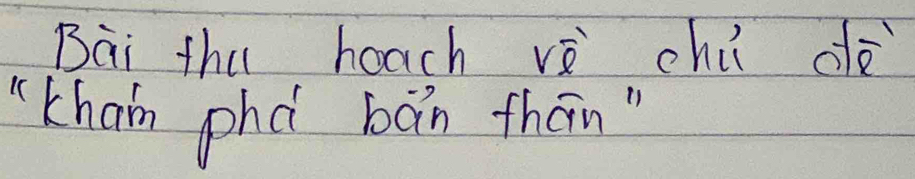 Bài thu hoach về chủ đề
"khám phá bản thân"